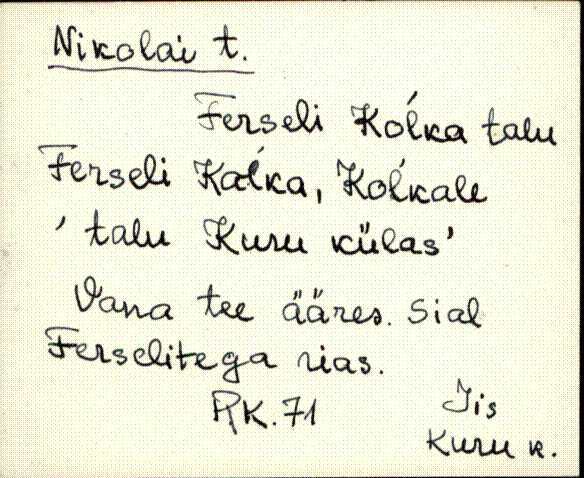 Nikolai t.
Ferseli Koĺka talu
Ferseli Kaĺka, Koĺkale
' talu Kuru külas'
Vana tee ääres. Sial
Ferselitega rias.
RK. 71
Iis
Kuru k.